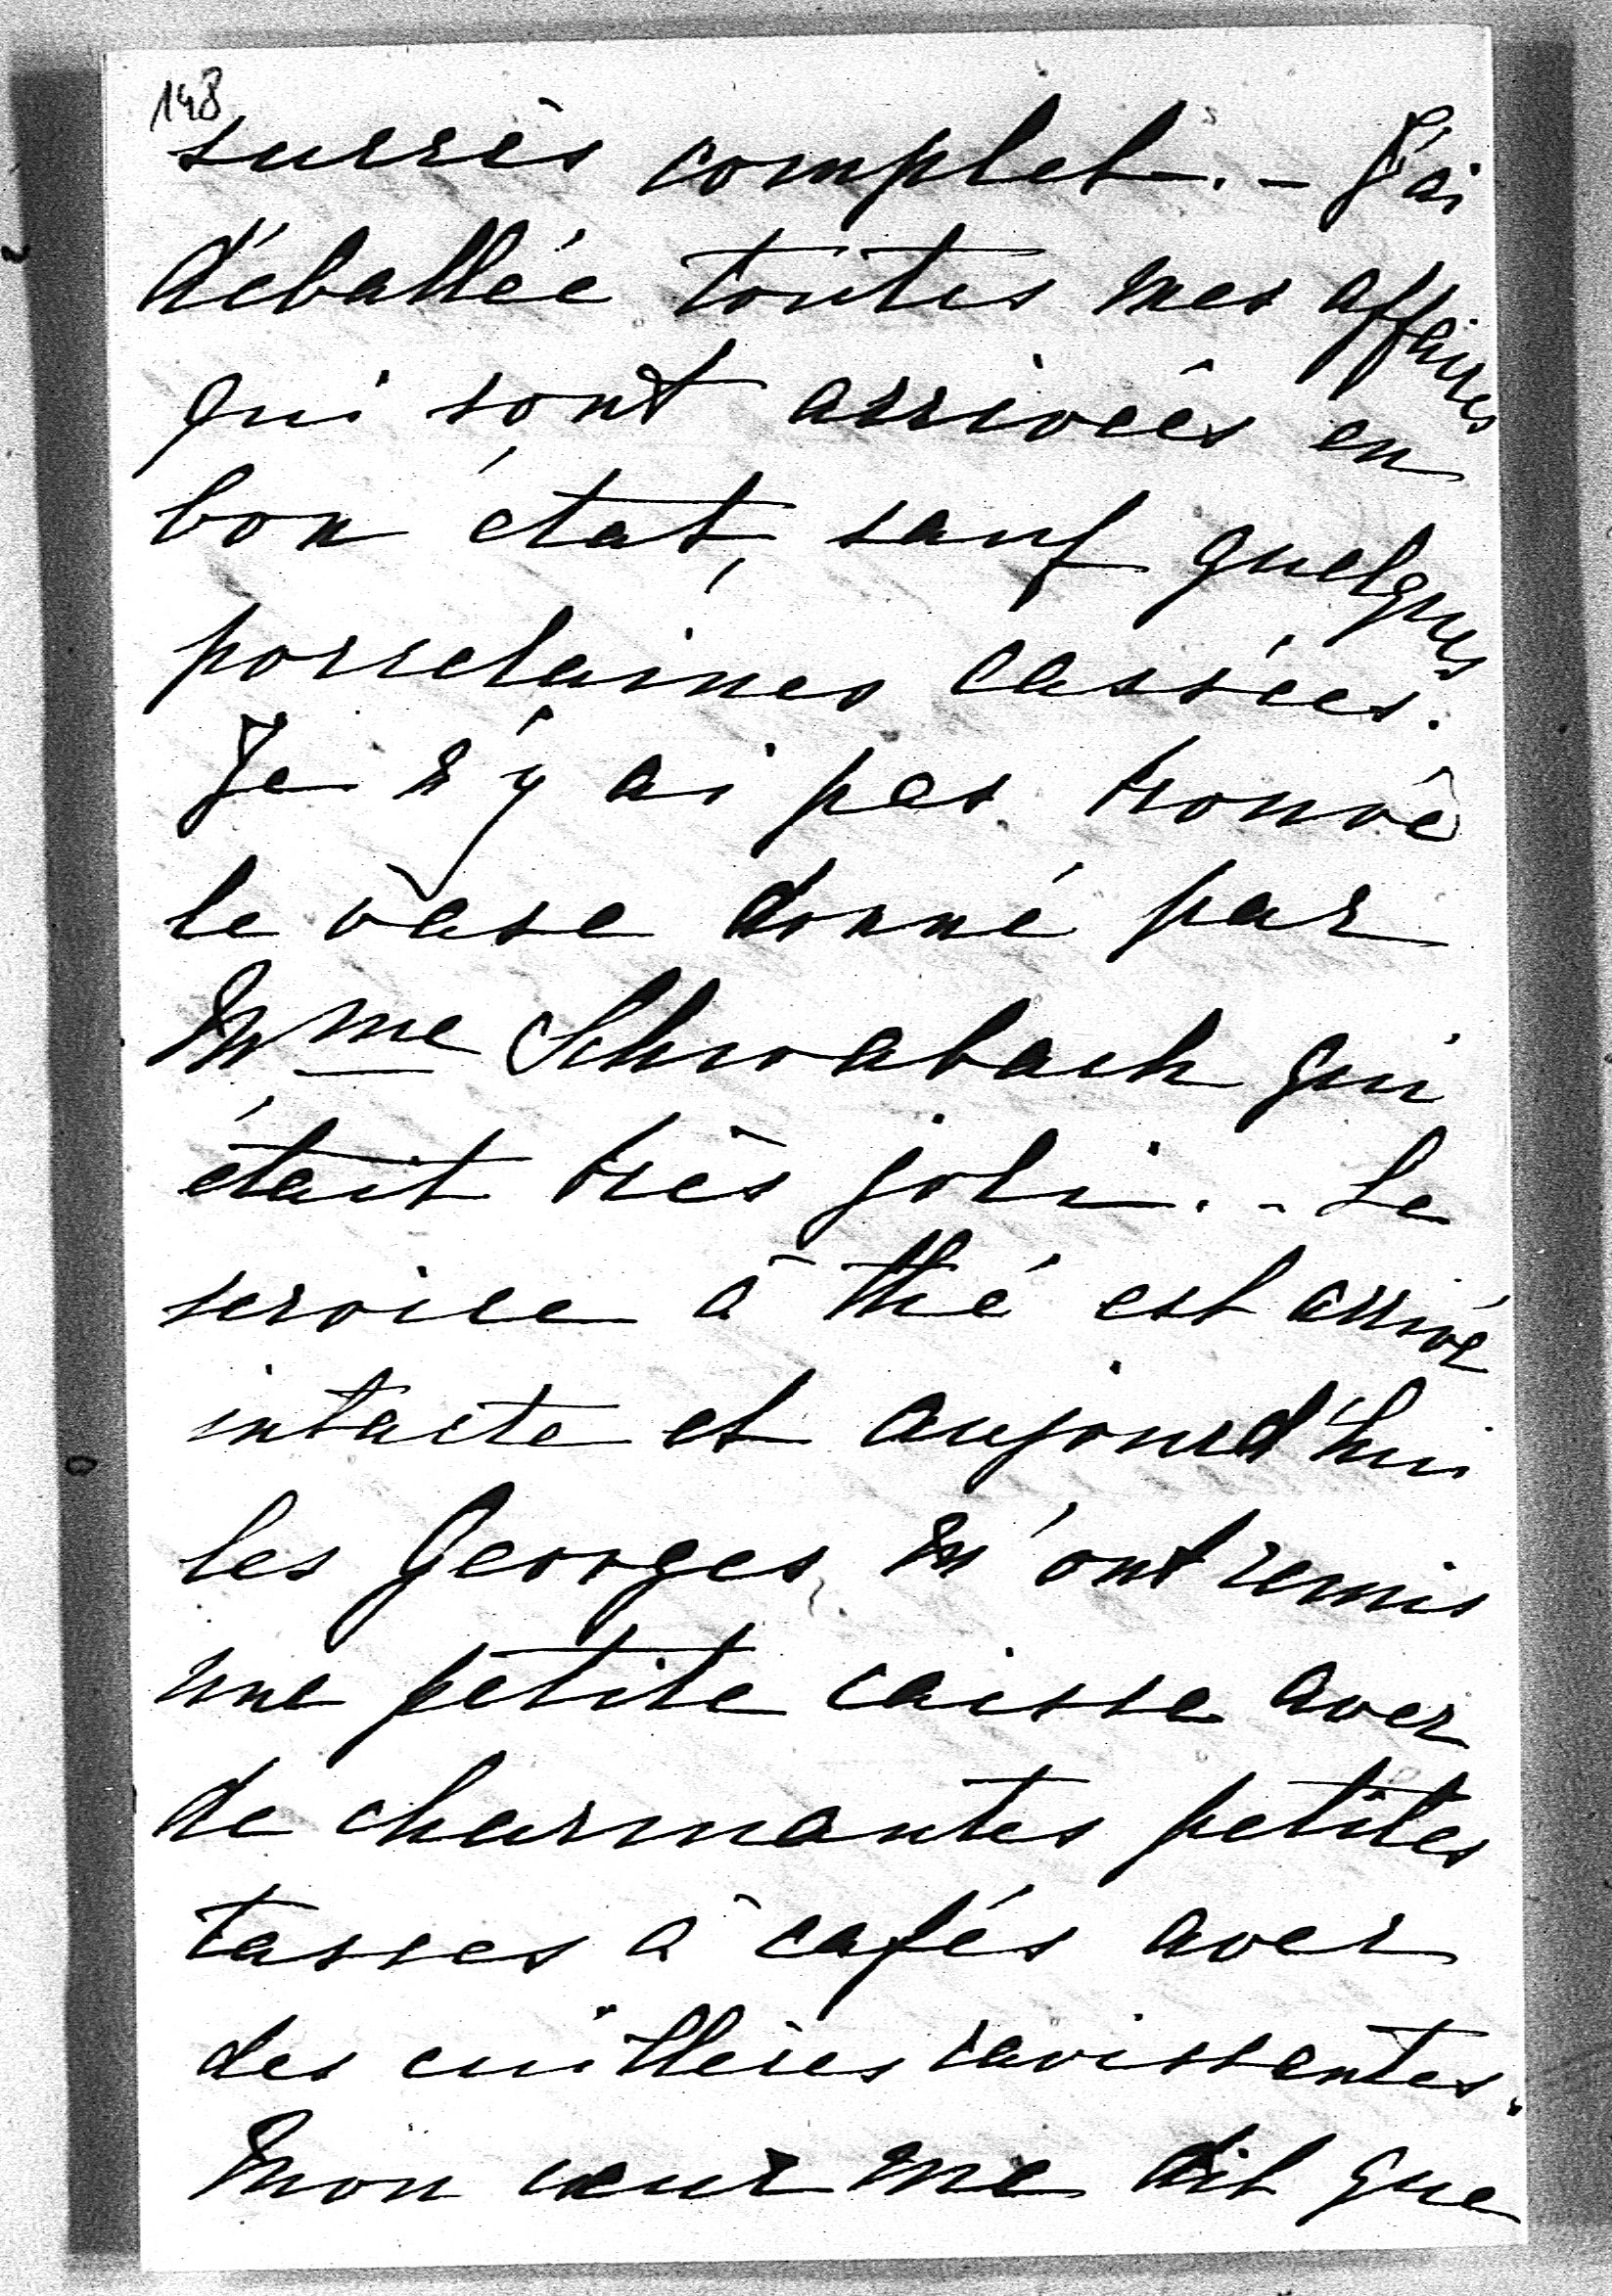 148
succès complet. - J'ai
déballée toutes mes affaires
qui sont arrivées en
bon état, sauf quelques
porcelaines cassées.
Je n'y ai pas trouvé
le vase donné par
Mme Schwabach qui
était très joli. - Le
service à thé est arrivé
intacte et aujourd'hui
les Georges m'ont remis
une petite caisse avec
de charmantes petites
tasses à cafés avec
des cuillères ravissantes.
Mon cœur me dit que